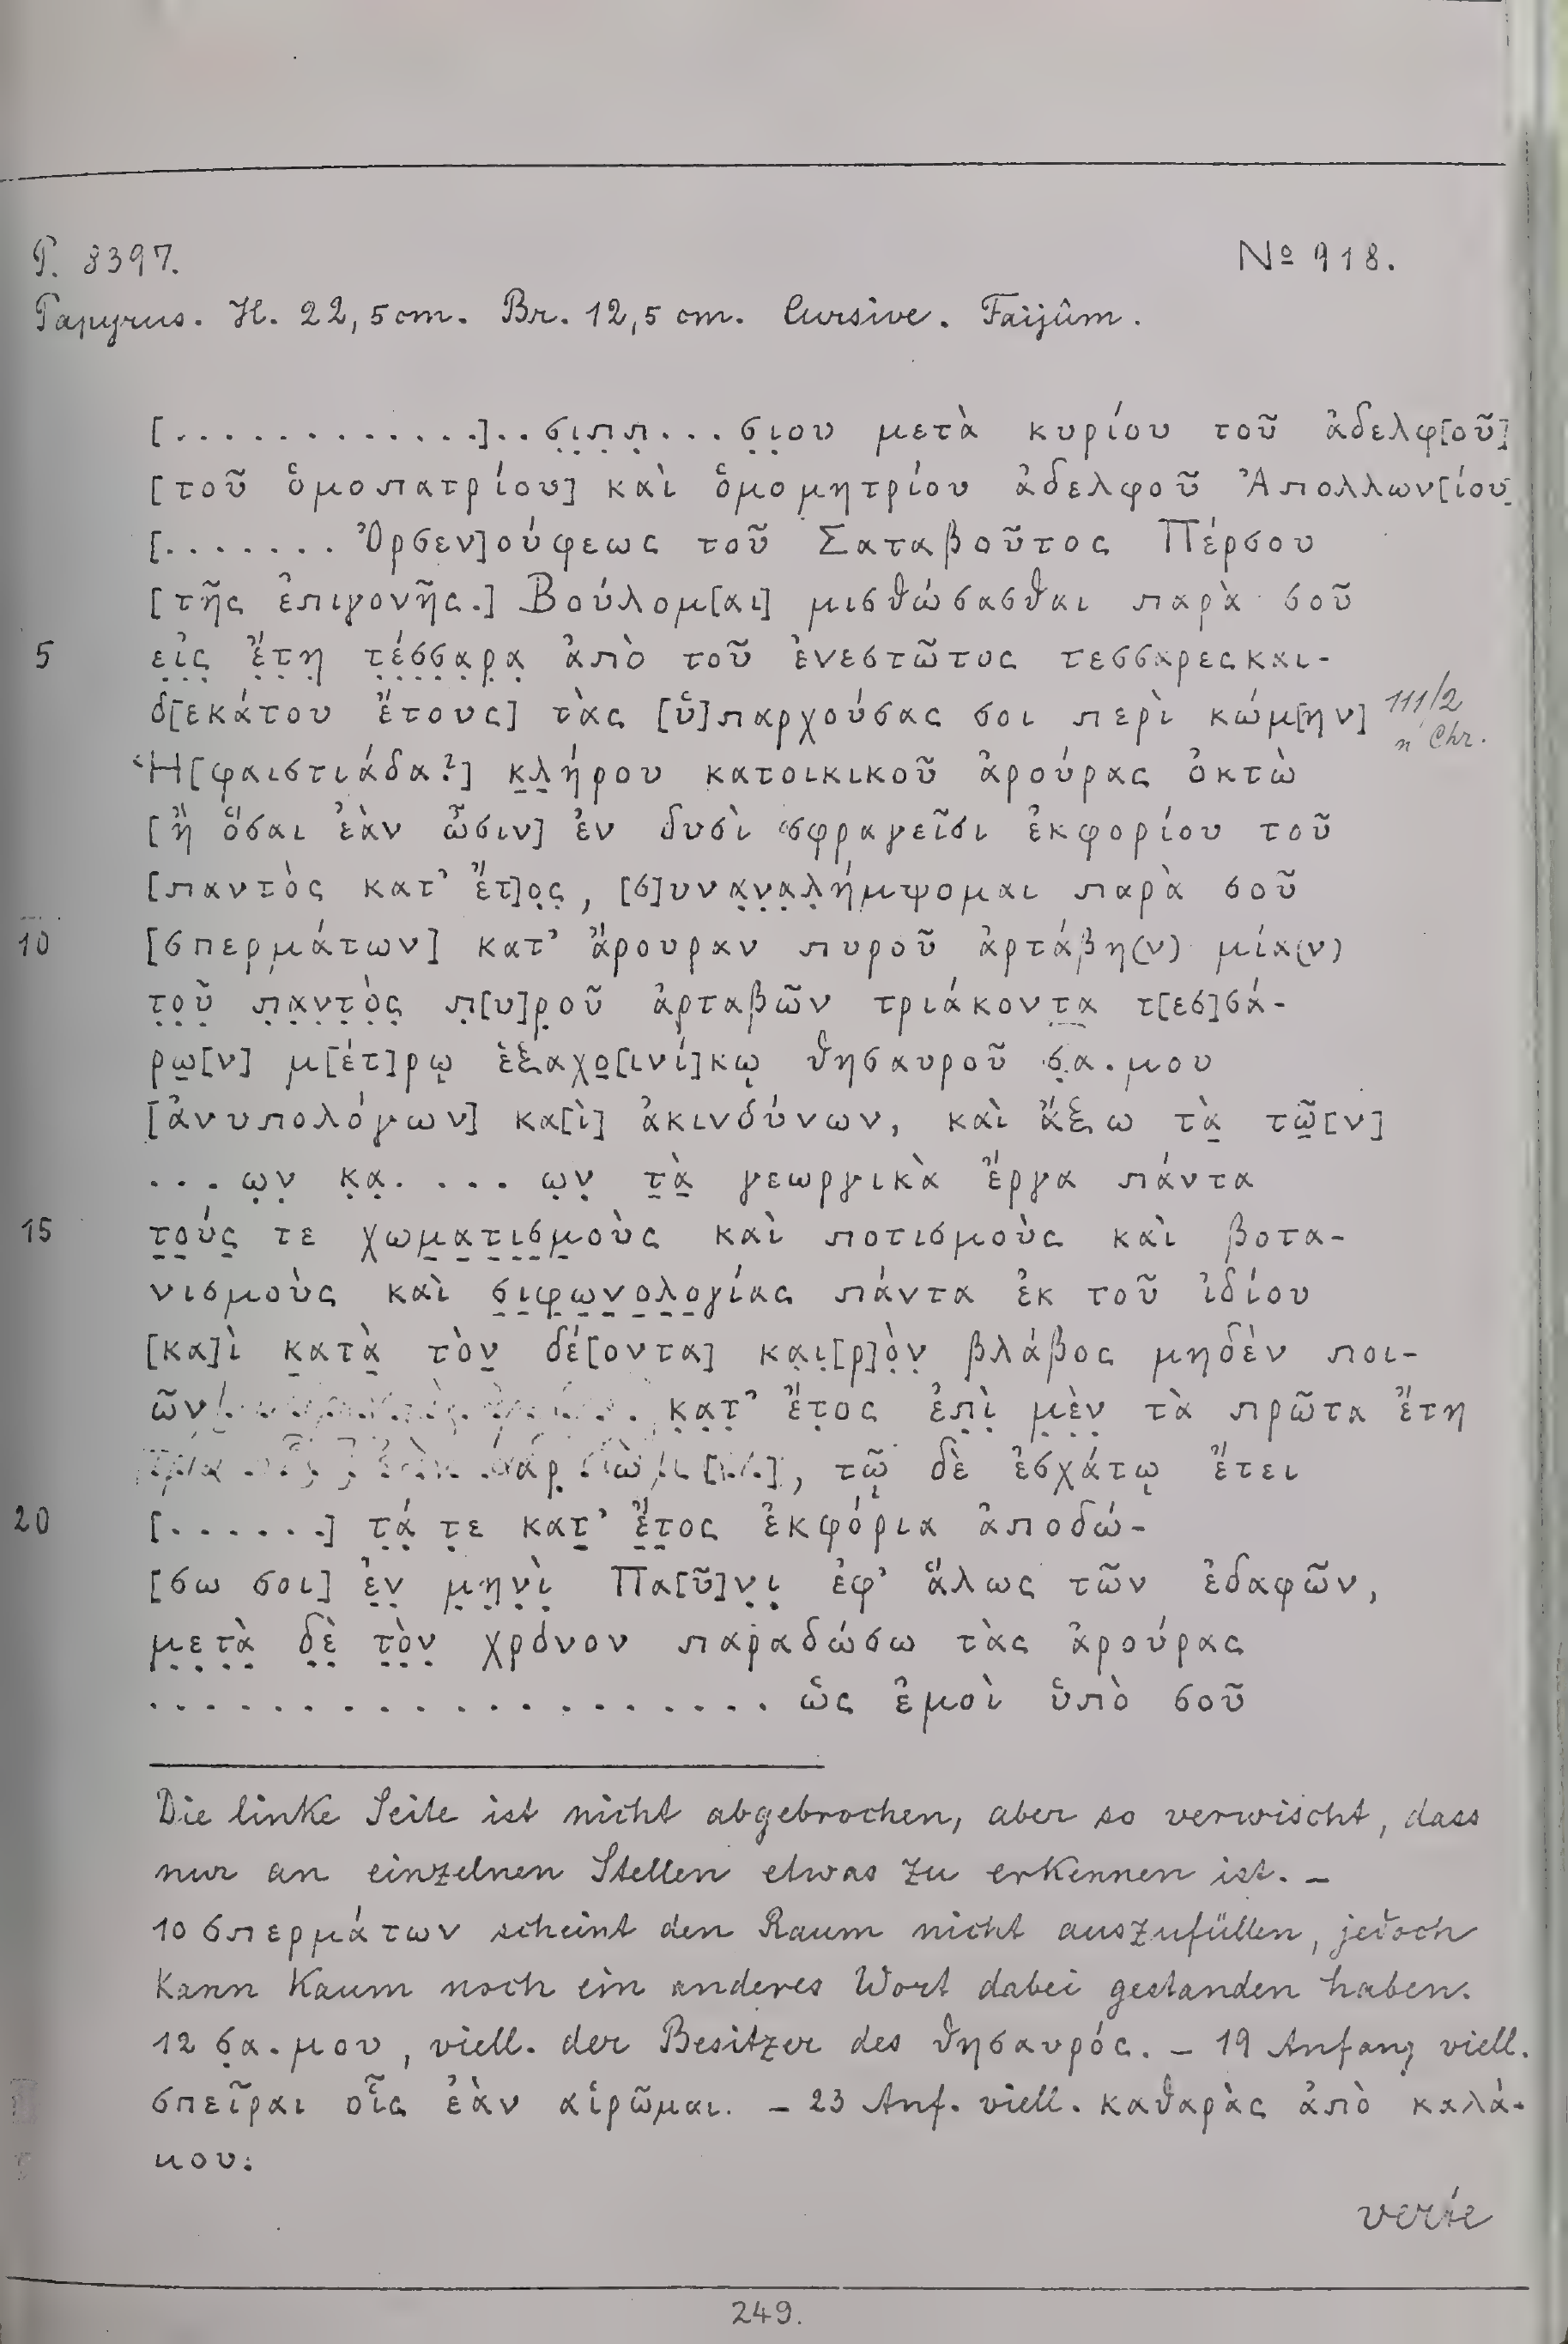 P. 8397. No 918.
Papyrus. H. 22,5 cm. Br. 12,5 cm. Cursive. Faijûm.
[. . . . . . . . . . . . .]. . σ̣ι̣π̣π̣. . . σ̣ι̣ου μετὰ κυρίου τοῦ ἀδελφ[οῦ]
[τοῦ ὁμοπατρίου] καὶ ὁμομητρίου ἀδελφοῦ Ἀπολλων[ίου]
[. . . . . . . Ὀρσεν]ούφεως τοῦ Σαταβοῦτος Πέρσου
[τῆς ἐπιγονῆς.] Βούλομ[αι] μισθώσασθαι παρὰ σοῦ
5 ε̣ἰ̣ς̣ ἔ̣τ̣η̣ τ̣έ̣σ̣σ̣α̣ρ̣α̣ ἀπὸ τοῦ ἐνεστῶτος τεσσαρεσκαι-
δ[εκάτου ἔτους] τὰς [ὑ]παρχούσας σοι περὶ κώμ[ην] 111/2
n Chr.
Ἡ[φαιστιάδα?] κ̣λ̣ήρου κατοικικοῦ ἀρούρας ὀκτὼ
[ἢ ὅσαι ἐὰν ὦσιν] ἐν δυσὶ σφραγεῖσι ἐκφορίου τοῦ
[παντὸς κατ’ ἔτ]ο̣ς̣, [σ]υνα̣ν̣α̣λ̣ήμψομαι παρὰ σοῦ
10 [σπερμάτων] κατ’ ἄρουραν πυροῦ ἀρτάβη(ν) μία(ν)
τ̣ο̣ῦ̣ π̣α̣ν̣τ̣ὸ̣ς̣ π̣[υ]ρ̣οῦ ἀρταβῶν τριάκοντ̣α̣ τ[εσ]σά-
ρω̣[ν] μ[έτ]ρῳ ἑξαχο̣[ινί]κῳ θησαυροῦ σ̣α.μου
[ἀνυπολόγων] κα[ὶ] ἀκινδύνων, καὶ ἄξω τὰ̣ τῶ̣[ν]
. . . ω̣ν̣ κ̣α̣. . . . ω̣ν̣ τ̣ὰ̣ γεωργικὰ ἔργα πάντα
15 τ̣ο̣ύ̣ς̣ τε χωμ̣α̣τ̣ι̣σ̣μ̣οὺς καὶ ποτισμοὺς καὶ βοτα-
νισμοὺς καὶ σ̣ι̣φ̣ω̣ν̣ο̣λ̣ο̣γίας πάντα ἐκ τοῦ ἰδίου
[κα]ὶ κ̣ατὰ̣ τὸν̣ δέ[οντα] κα̣ι̣[ρ]ὸ̣ν̣ βλάβος μηδὲν ποι-
ῶν κ̣α̣τ̣’ ἔτ̣ος ἐπ̣ὶ̣ μ̣ὲ̣ν̣ τὰ πρῶτα ἔτη
, τῷ δὲ ἐσχάτῳ ἔτει
20 [. . . . . .] τ̣ά̣ τ̣ε κατ̣’ ἔ̣τ̣ος ἐκφόρια ἀποδώ-
[σω σοι] ἐ̣ν̣ μ̣η̣ν̣ὶ̣ Πα[ῦ]ν̣ι̣ ἐφ’ ἅλως τῶν ἐδαφῶν,
μ̣ε̣τ̣ὰ̣ δ̣ὲ̣ τ̣ὸ̣ν̣ χρόνον παραδώσω τὰς ἀρούρας
. . . . . . . . . . . . . . . . . . . . ὡς ἐμοὶ ὑπὸ σοῦ
Die linke Seite ist nicht abgebrochen, aber so verwischt, dass
nur an einzelnen Stellen etwas zu erkennen ist. –
10 σπερμάτων scheint den Raum nicht auszufüllen, jedoch
kann kaum noch ein anderes Wort dabei gestanden haben.
12 σ̣α.μου, viell. der Besitzer des θησαυρός. – 19 Anfang viell.
σπεῖραι οἷς ἐὰν αἱρῶμαι. – 23 Anf. viell. καθαρὰς ἀπὸ καλά-
μου.
verte
249.